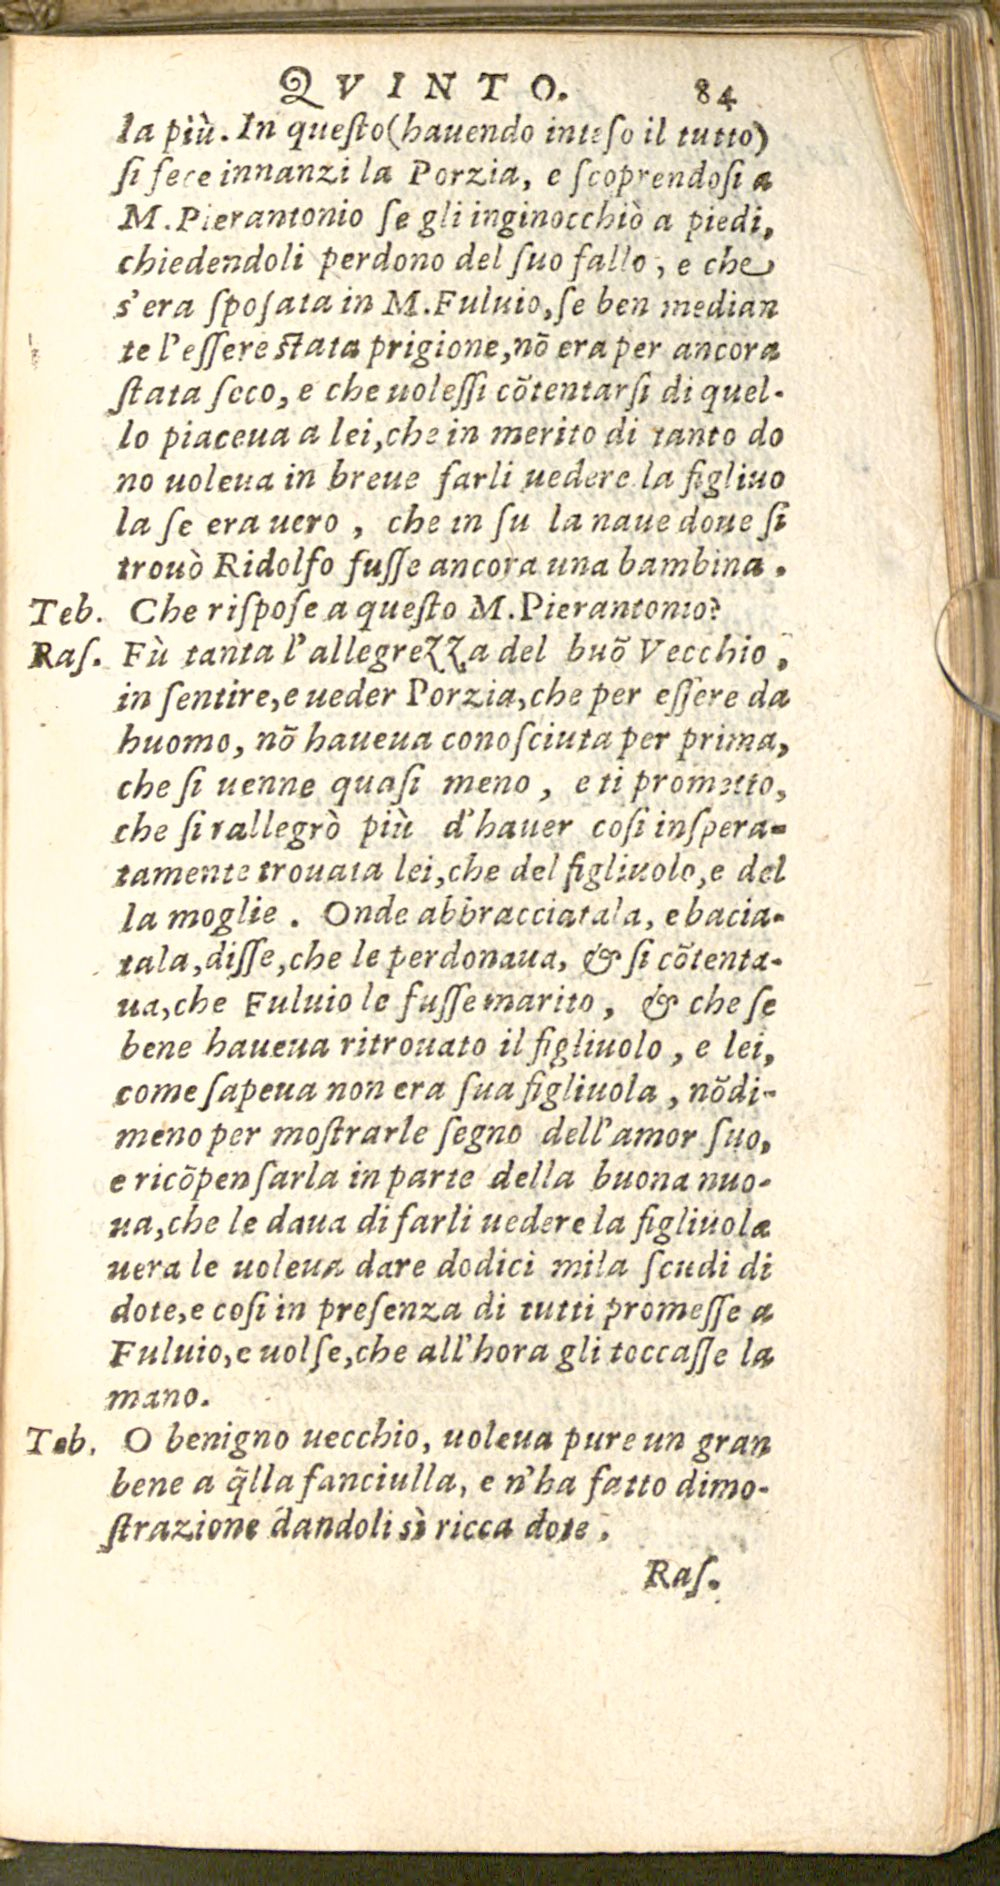 QVINTO. 84
la più. In queſto (hauendo inteſo il tutto)
ſi fece innanzi la Porzia, e ſcoprendoſi a
M. Pierantonio ſe gli inginocchiò a piedi,
chiedendoli perdono del ſuo fallo, e che
s'era ſpoſata in M. Fuluio, ſe ben median
te l'eſſere stata prigione, nõ era per ancora
ſtata ſeco, e che uoleſſi cõtentarſi di quel-
lo piaceua a lei, che in merito di tanto do
no uoleua in breue farli uedere la figliuo
la ſe era uero, che in ſu la naue doue ſi
trouò Ridolfo fuſſe ancora una bambina.
Teb. Che riſpoſe a queſto M. Pierantonio?
Raſ. Fù tanta l'allegrezza del buõ Vecchio,
in ſentire, e ueder Porzia, che per eſſere da
huomo, nõ haueua conoſciuta per prima,
che ſi uenne quaſi meno, e ti prometto,
che ſi rallegrò più d'hauer coſi inſpera-
tamente trouata lei, che del figliuolo, e del
la moglie. Onde abbracciatala, e bacia-
tala, diſſe, che le perdonaua, & ſi cõtenta-
ua, che Fuluio le fuſſe marito, & che ſe
bene haueua ritrouato il figliuolo, e lei,
come ſapeua non era ſua figliuola, nõdi-
meno per moſtrarle ſegno dell'amor ſuo,
e ricõpenſarla in parte della buona nuo-
ua, che le daua di farli uedere la figliuola
uera le uoleua dare dodici mila ſcudi di
dote, e coſi in preſenza di tutti promeſſe a
Fuluio, e uolſe, che all'hora gli toccaſſe la
mano.
Teb. O benigno uecchio, uoleua pure un gran
bene a q̃lla fanciulla, e n'ha fatto dimo-
ſtrazione dandoli sì ricca dote.
Raſ.